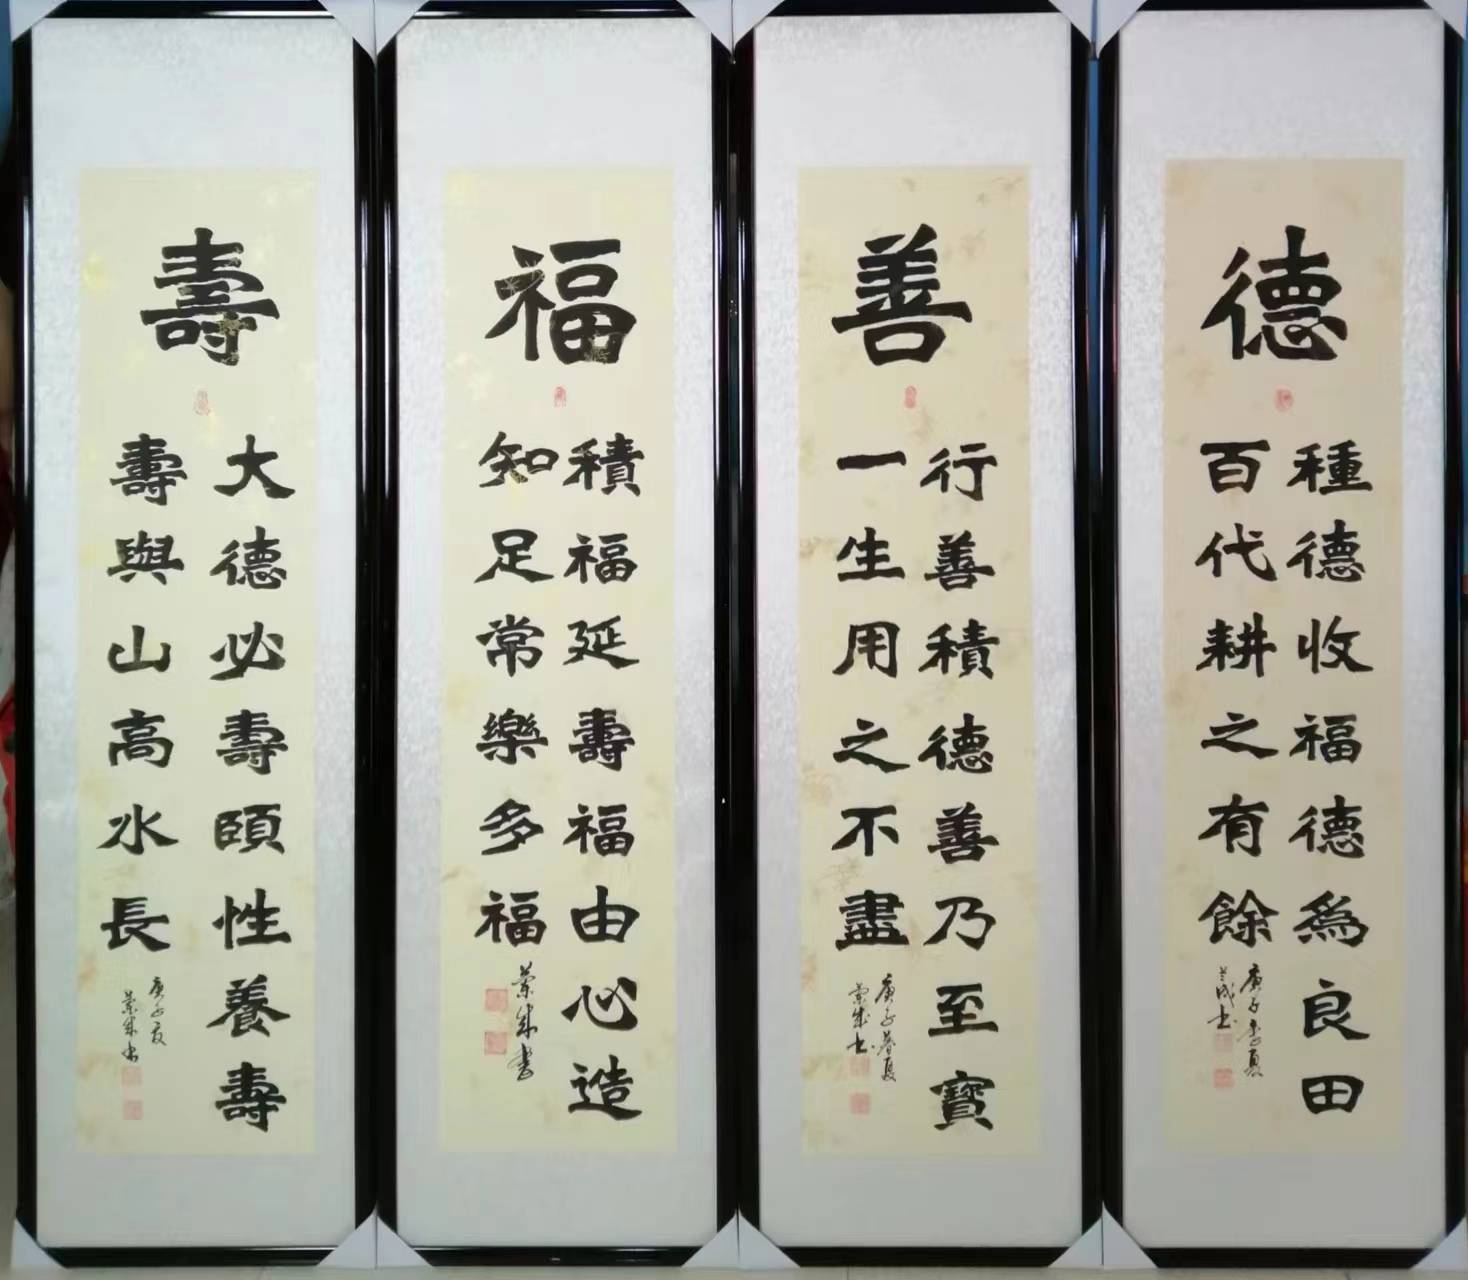 德
種德收福德為良田
百代耕之有餘
庚子季夏
蘭成書
善
行善積德善乃至寶
一生用之不盡
庚子暮夏
蘭成書
福
積福延壽福由心造
知足常樂多福
蘭成書
壽
大德必壽頤性養壽
壽與山高水長
庚子夏
蘭成書